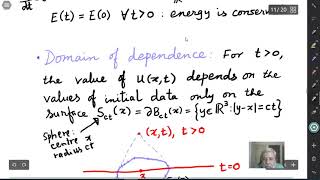 dt E(t) = E(0) ∀ t > 0 : energy is conser
11 / 20
• Domain of dependence : For t > 0,
the value of u(x,t) depends on the
values of initial data only on the
surface S_ct(x) = ∂B_ct(x) = {y∈ℝ³: |y-x| = ct}
Sphere:
centre x
radius ct
(x,t), t > 0
t = 0
x